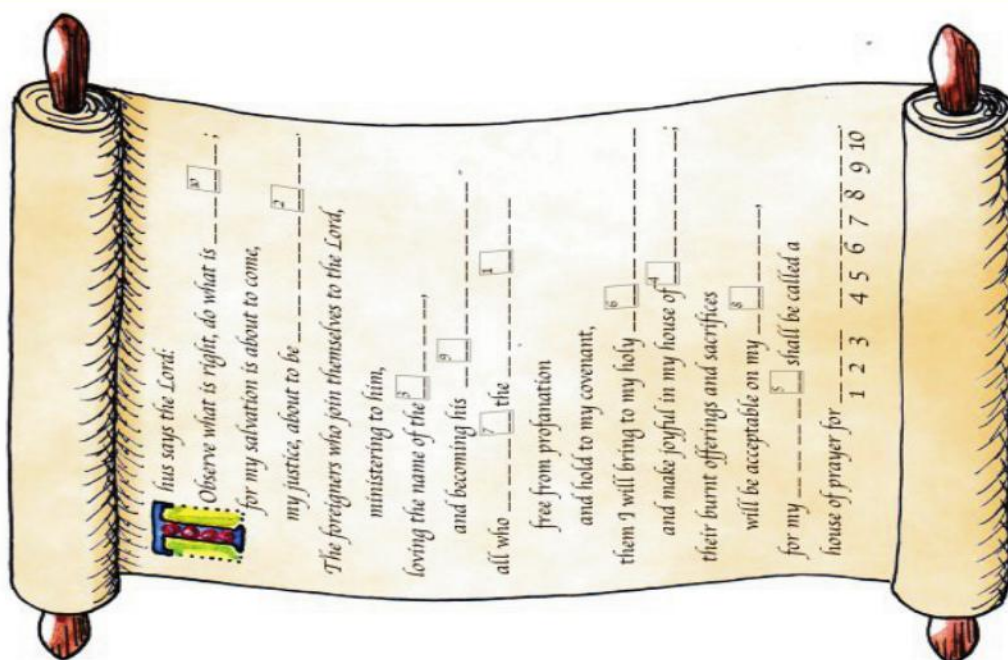 Thus says the Lord:
Observe what is right, do what is _ _ 10 _ ;
for my salvation is about to come,
my justice, about to be _ _ _ _ _ 2 _ _ .
The foreigners who join themselves to the Lord,
ministering to him,
loving the name of the 3 _ _ _ ,
and becoming his _ 9 _ _ _ _ _ _ .
all who _ _ _ 7 the _ _ _ _ 1 _ _ _
free from profanation
and hold to my covenant,
them I will bring to my holy _ 6 _ _ _ _ _ _
and make joyful in my house of 4 _ _ _ _ _ ;
their burnt offerings and sacrifices
will be acceptable on my _ 8 _ _ _ ,
for my _ _ _ _ 5 shall be called a
house of prayer for _ _ _ _ _ _ _ _ _ _ .
1 2 3 4 5 6 7 8 9 10